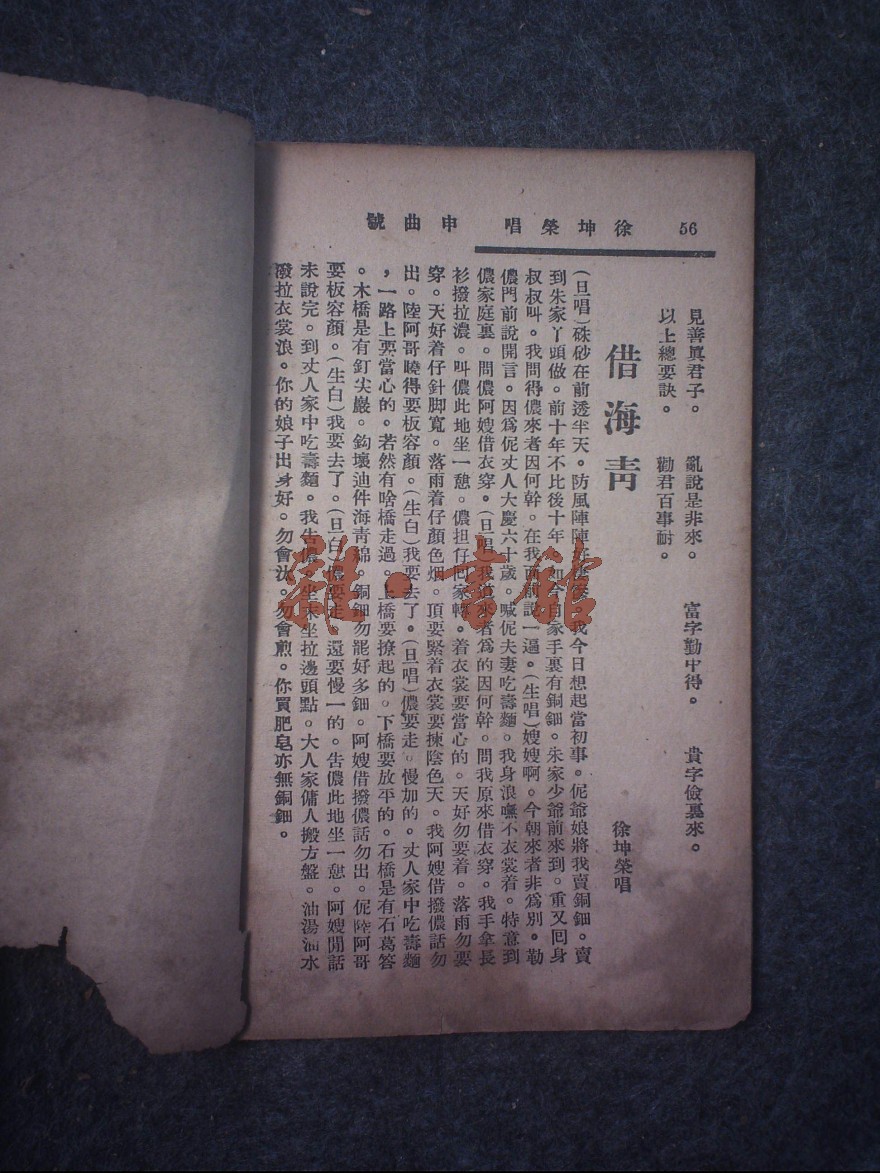 56　徐坤榮唱　申曲號
見善眞君子。　亂說是非來。　富字勤中得。　貴字儉裏來。
以上總要訣。　勸君百事耐。
借海靑　徐坤榮唱
(旦唱)硃砂在前透半天。防風陣陣　我今日想起當初事。伲爺娘將我賣銅鈿。賣
到朱家丫頭做。前十年不比後十年。如今自家手裏有銅鈿。朱家少爺前來到。重又回身
叔叔叫。我問得儂來者因何幹。在我面前說一遍。(生唱)嫂嫂啊。今朝來者非爲別。勒
儂門前說開言。因爲伲丈人大慶六十歲。喊伲夫妻吃壽麵。我身浪嘸不衣裳着。特意到
儂家庭裏。問儂阿嫂借衣穿。(旦唱)我道來者爲的因何幹。問我原來借衣穿。我手拿長
衫撥拉濃。叫儂此地坐一憩。儂担仔回家轉。着衣裳要當心的。天好勿要着。落雨勿要
穿。天好着仔針脚寬。落雨着仔顏色烟。頂要緊着衣裳要揀陰色天。我阿嫂借撥儂話勿
出。陸阿哥曉得要板容顏。(生白)我要去了。(旦唱)儂要走。慢加的。丈人家中吃壽麵
，一路上要當心的。若然有啥橋走過。上橋要撩起的。下橋要放平的。石橋是有石葛答
。木橋是有釘尖巖。鈎壞迪件海靑綿。銅鈿勿罷好多鈿。阿嫂借撥儂話勿出。伲陸阿哥
要板容顏。(生白)我要去了。(旦白)儂要走。還要慢一的。告儂此地坐一憩。阿嫂閒話
未說完。到丈人家中吃壽麵。我告儂。坐末坐拉邊頭點。大人家傭人搬方盤。油湯油水
潑拉衣裳浪。你的娘子出身好。勿會汏。勿會煎。你買肥皂亦無銅鈿。
雜·書館